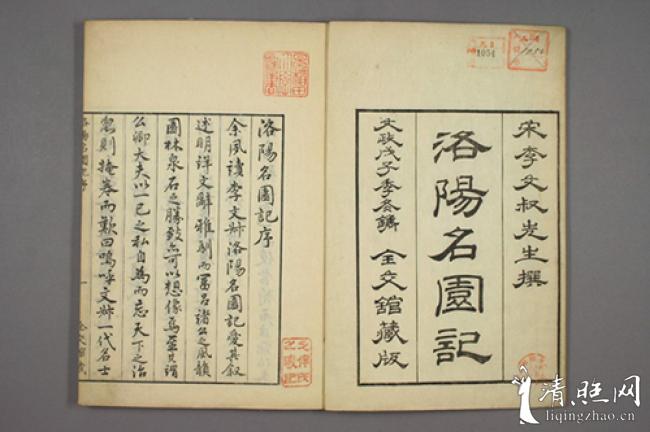 宋李文叔先生撰
洛陽名園記
文政戊子季冬鐫 全交館藏版
1054
洛陽名園記序
余夙讀李文叔洛陽名園記愛其叙
述明詳文辭雅馴而冨呂諸公之風韻
園林泉石之勝致亦可以想像焉至其謂
公卿大夫以一己之私自為而忘天下之治
忽則掩卷而歎曰嗚呼文叔一代名士
洛陽名園記序 一
清照网
liqingzhao.cn